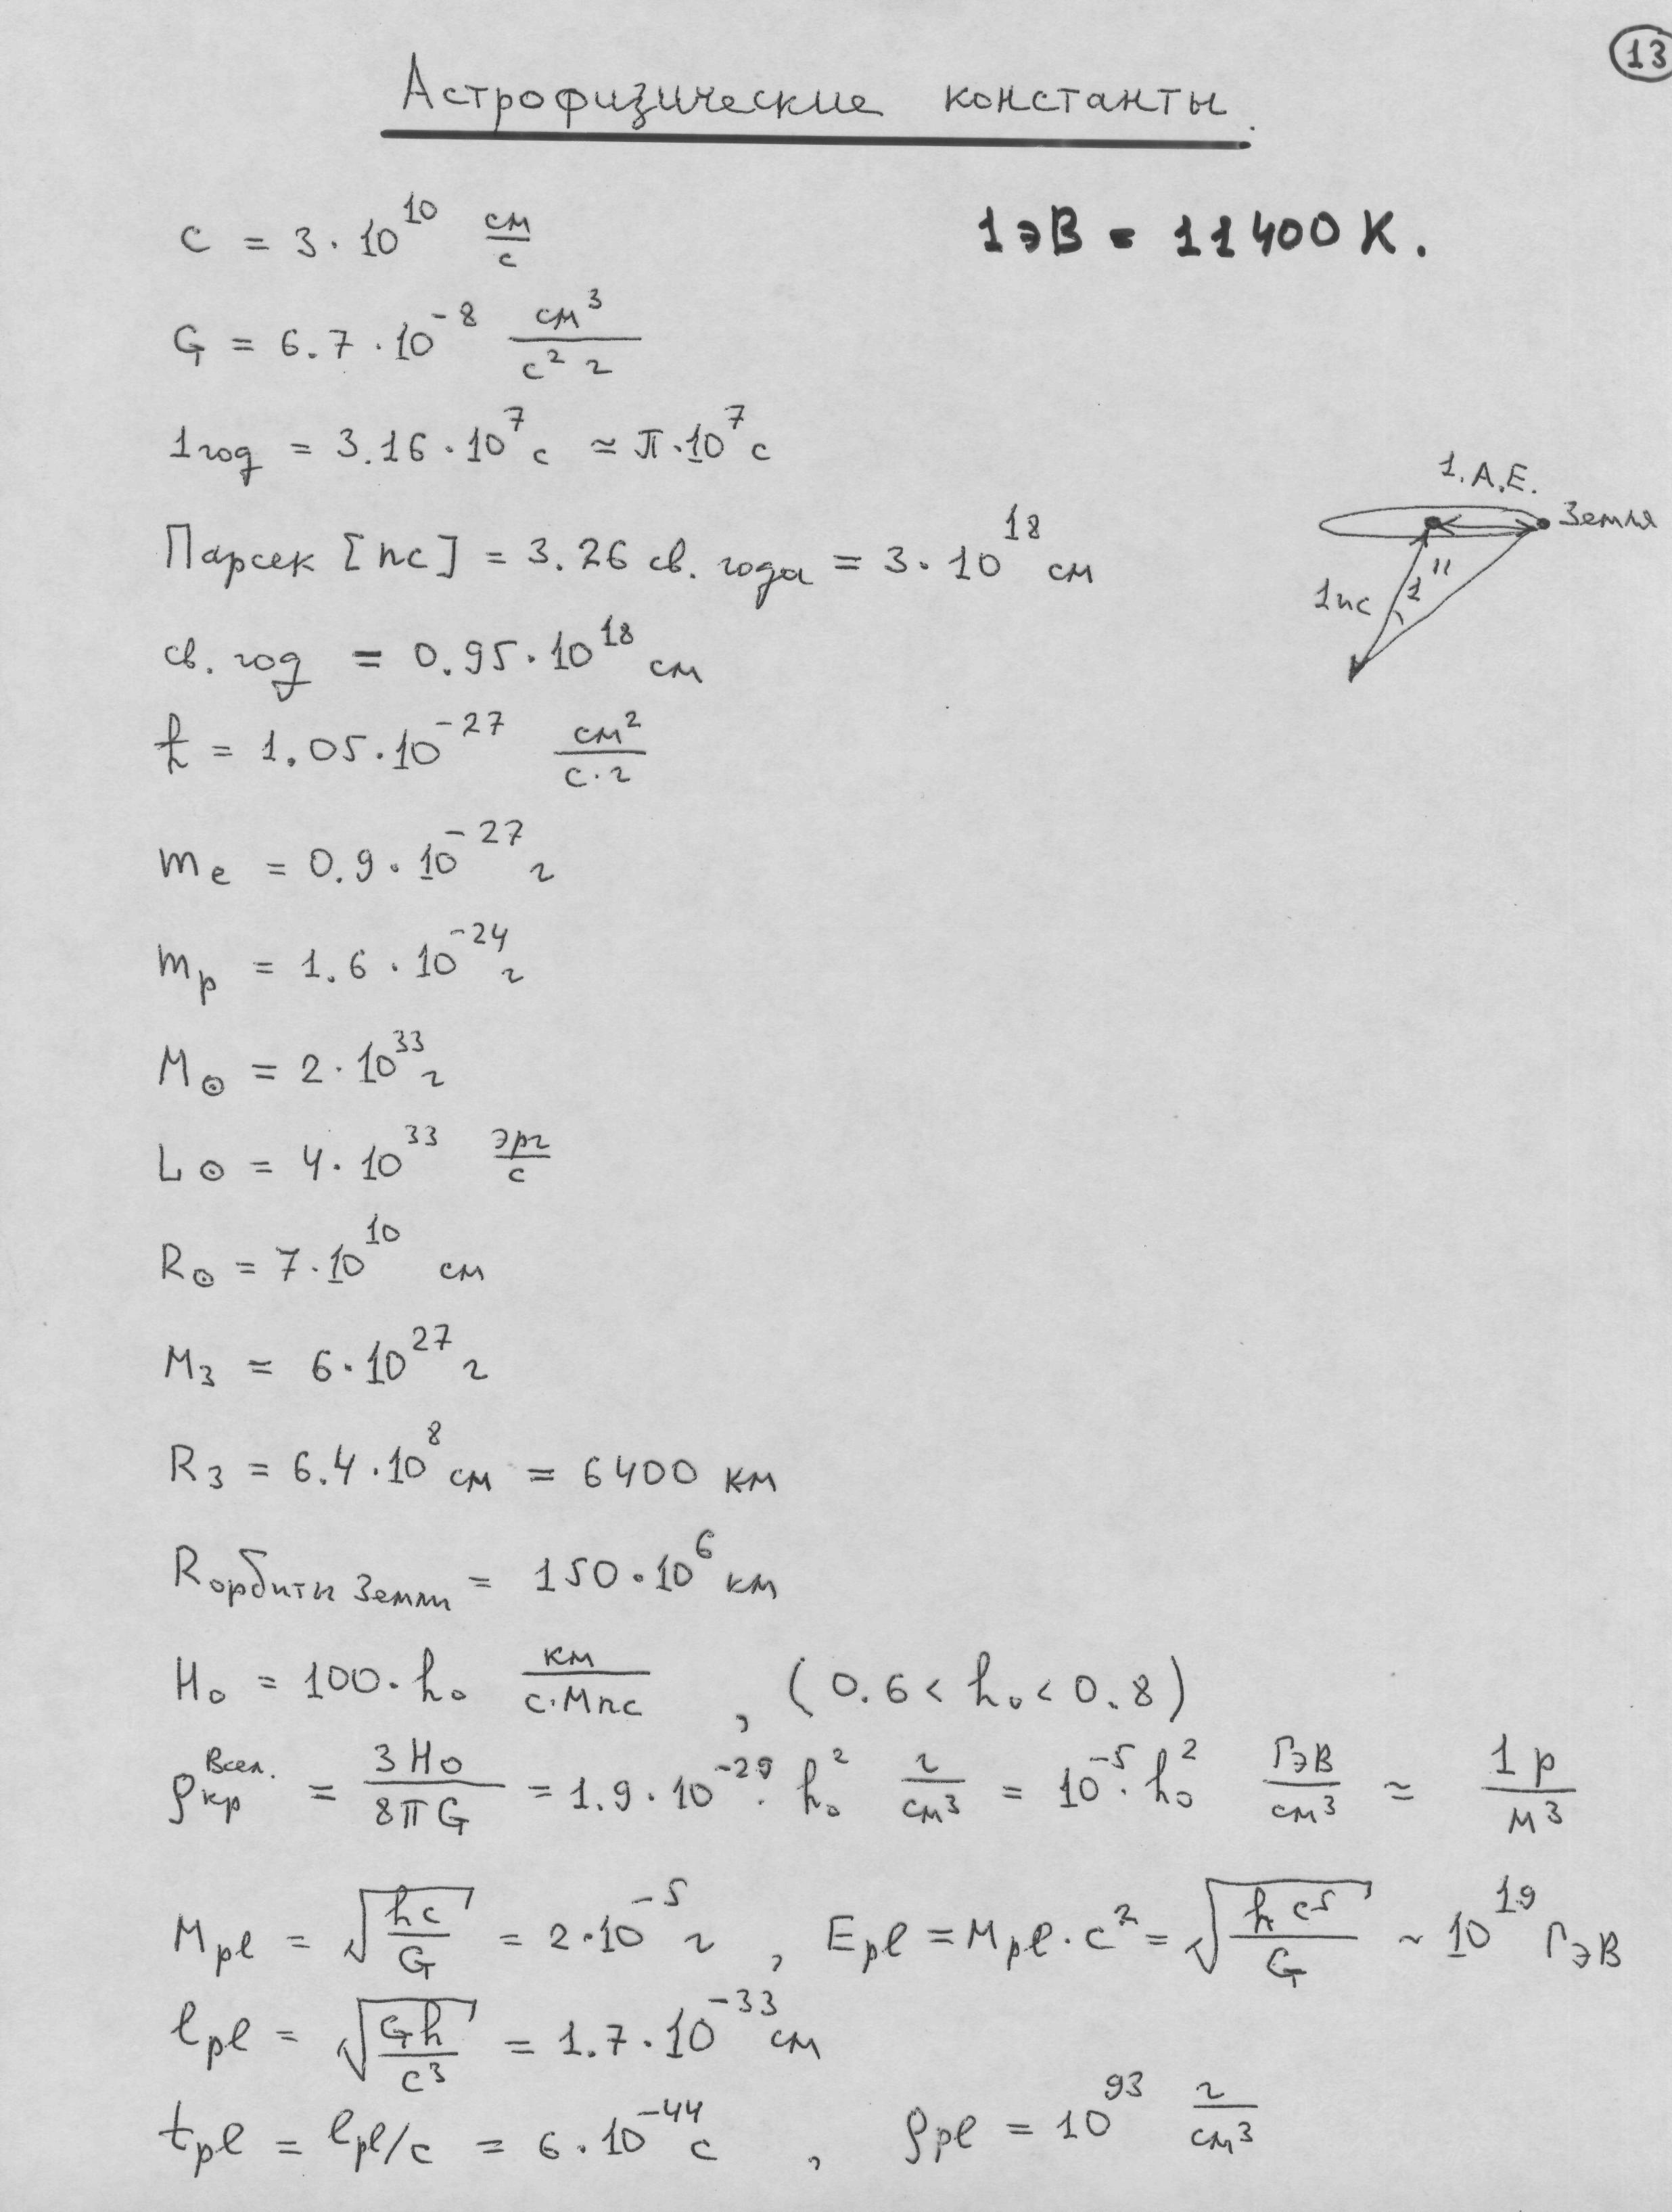 13
Астрофизические константы.
c = 3·10^10 см/с
1эВ = 11400 К.
G = 6.7·10^-8 см^3/(с^2 г)
1год = 3.16·10^7 с ≈ π·10^7 с
Парсек [пс] = 3.26 св. года = 3·10^18 см
1.А.Е.
Земля
1пс 1"
св. год = 0.95·10^18 см
ℏ = 1.05·10^-27 см^2/(с·г)
m_e = 0.9·10^-27 г
m_p = 1.6·10^-24 г
M_⊙ = 2·10^33 г
L_⊙ = 4·10^33 эрг/с
R_⊙ = 7·10^10 см
M_З = 6·10^27 г
R_З = 6.4·10^8 см = 6400 км
R_орбиты Земли = 150·10^6 км
H_0 = 100·h_0 км/(с·Мпс) , (0.6 < h_0 < 0.8)
ρ_кр^Всел. = 3H_0/(8πG) = 1.9·10^-29·h_0^2 г/см^3 = 10^-5·h_0^2 ГэВ/см^3 ≈ 1p/м^3
M_pl = √(hc/G) = 2·10^-5 г , E_pl = M_pl·c^2 = √(hc^5/G) ~ 10^19 ГэВ
l_pl = √(Gh/c^3) = 1.7·10^-33 см
t_pl = l_pl/c = 6·10^-44 с , ρ_pl = 10^93 г/см^3